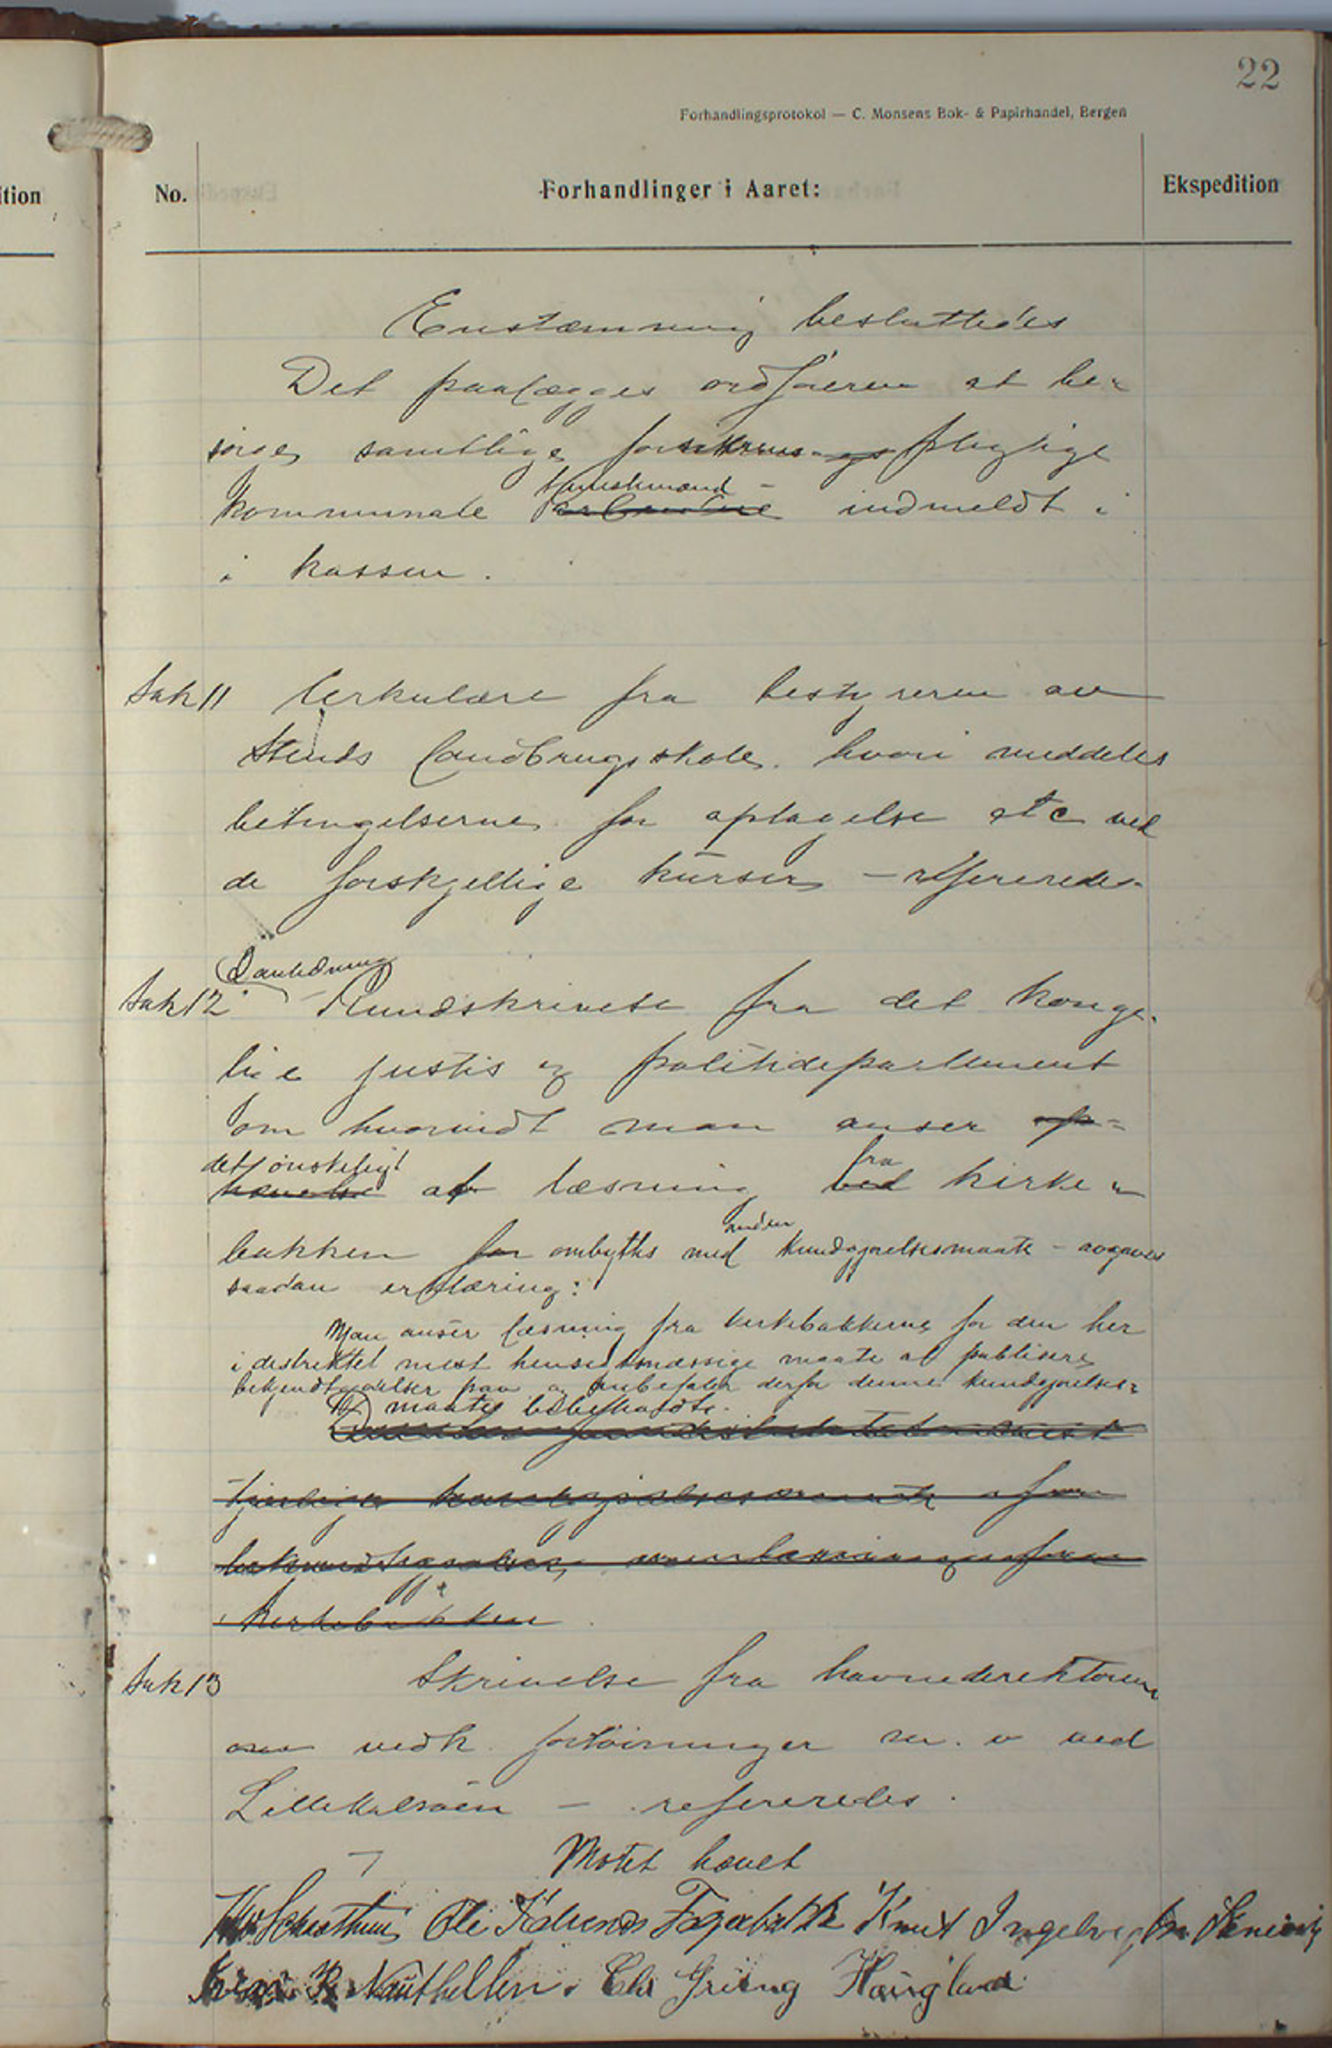 22
Forhandlingsprotokol — C. Monsens Bok- & Papirhandel, Bergen
ition
No.
Forhandlinger i Aaret:
Ekspedition
Enstemmig besluttedes
Det paalægges ordføreren at be-
sørge samtlige forsikringspligtige
tjenestemænd
kommunale arbeidere indmeldt i
i kassen.
Sak 11 Cirkulære fra bestyreren av
Stends landbrugsskole. hvori meddeles
betingelserne for optagelse etc ved
de forskjellige kurser – refereredes.
I anledning
Sak 12 Rundskrivelse fra det konge-
lige justis og politidepartement
om hvorvidt man anser op-
det ønskeligt
hævelse at læsning fra ved kirke-
bakken for ombyttes med anden kundgjørelsesmaate – avgaves
saadan erklæring:
Man anser læsning fra kirkebakkerne for den her
i distriktet mest hensigtsmæssige maate at publisere
bekjendtgjørelser paa og anbefaler derfor denne kundgjørelses-
maate bibeholdt.
kirkebakken
Sak 13 Skrivelse fra havnedirektøren
vedk. fortøininger m. v ved
Lillekalsøen – refereredes.
Møtet hævet
Ole Fagerbakke Knut Ingebrigtsen
R. Nautbellen. Chr Griung Haugland